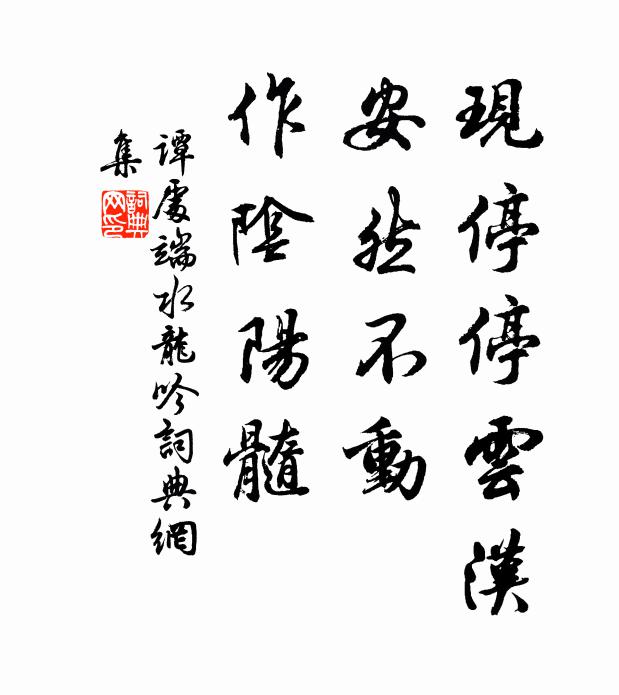 現停停雲漢
安然不動
作陰陽髓
譚處端水龍吟詞典網
集
詞典網印